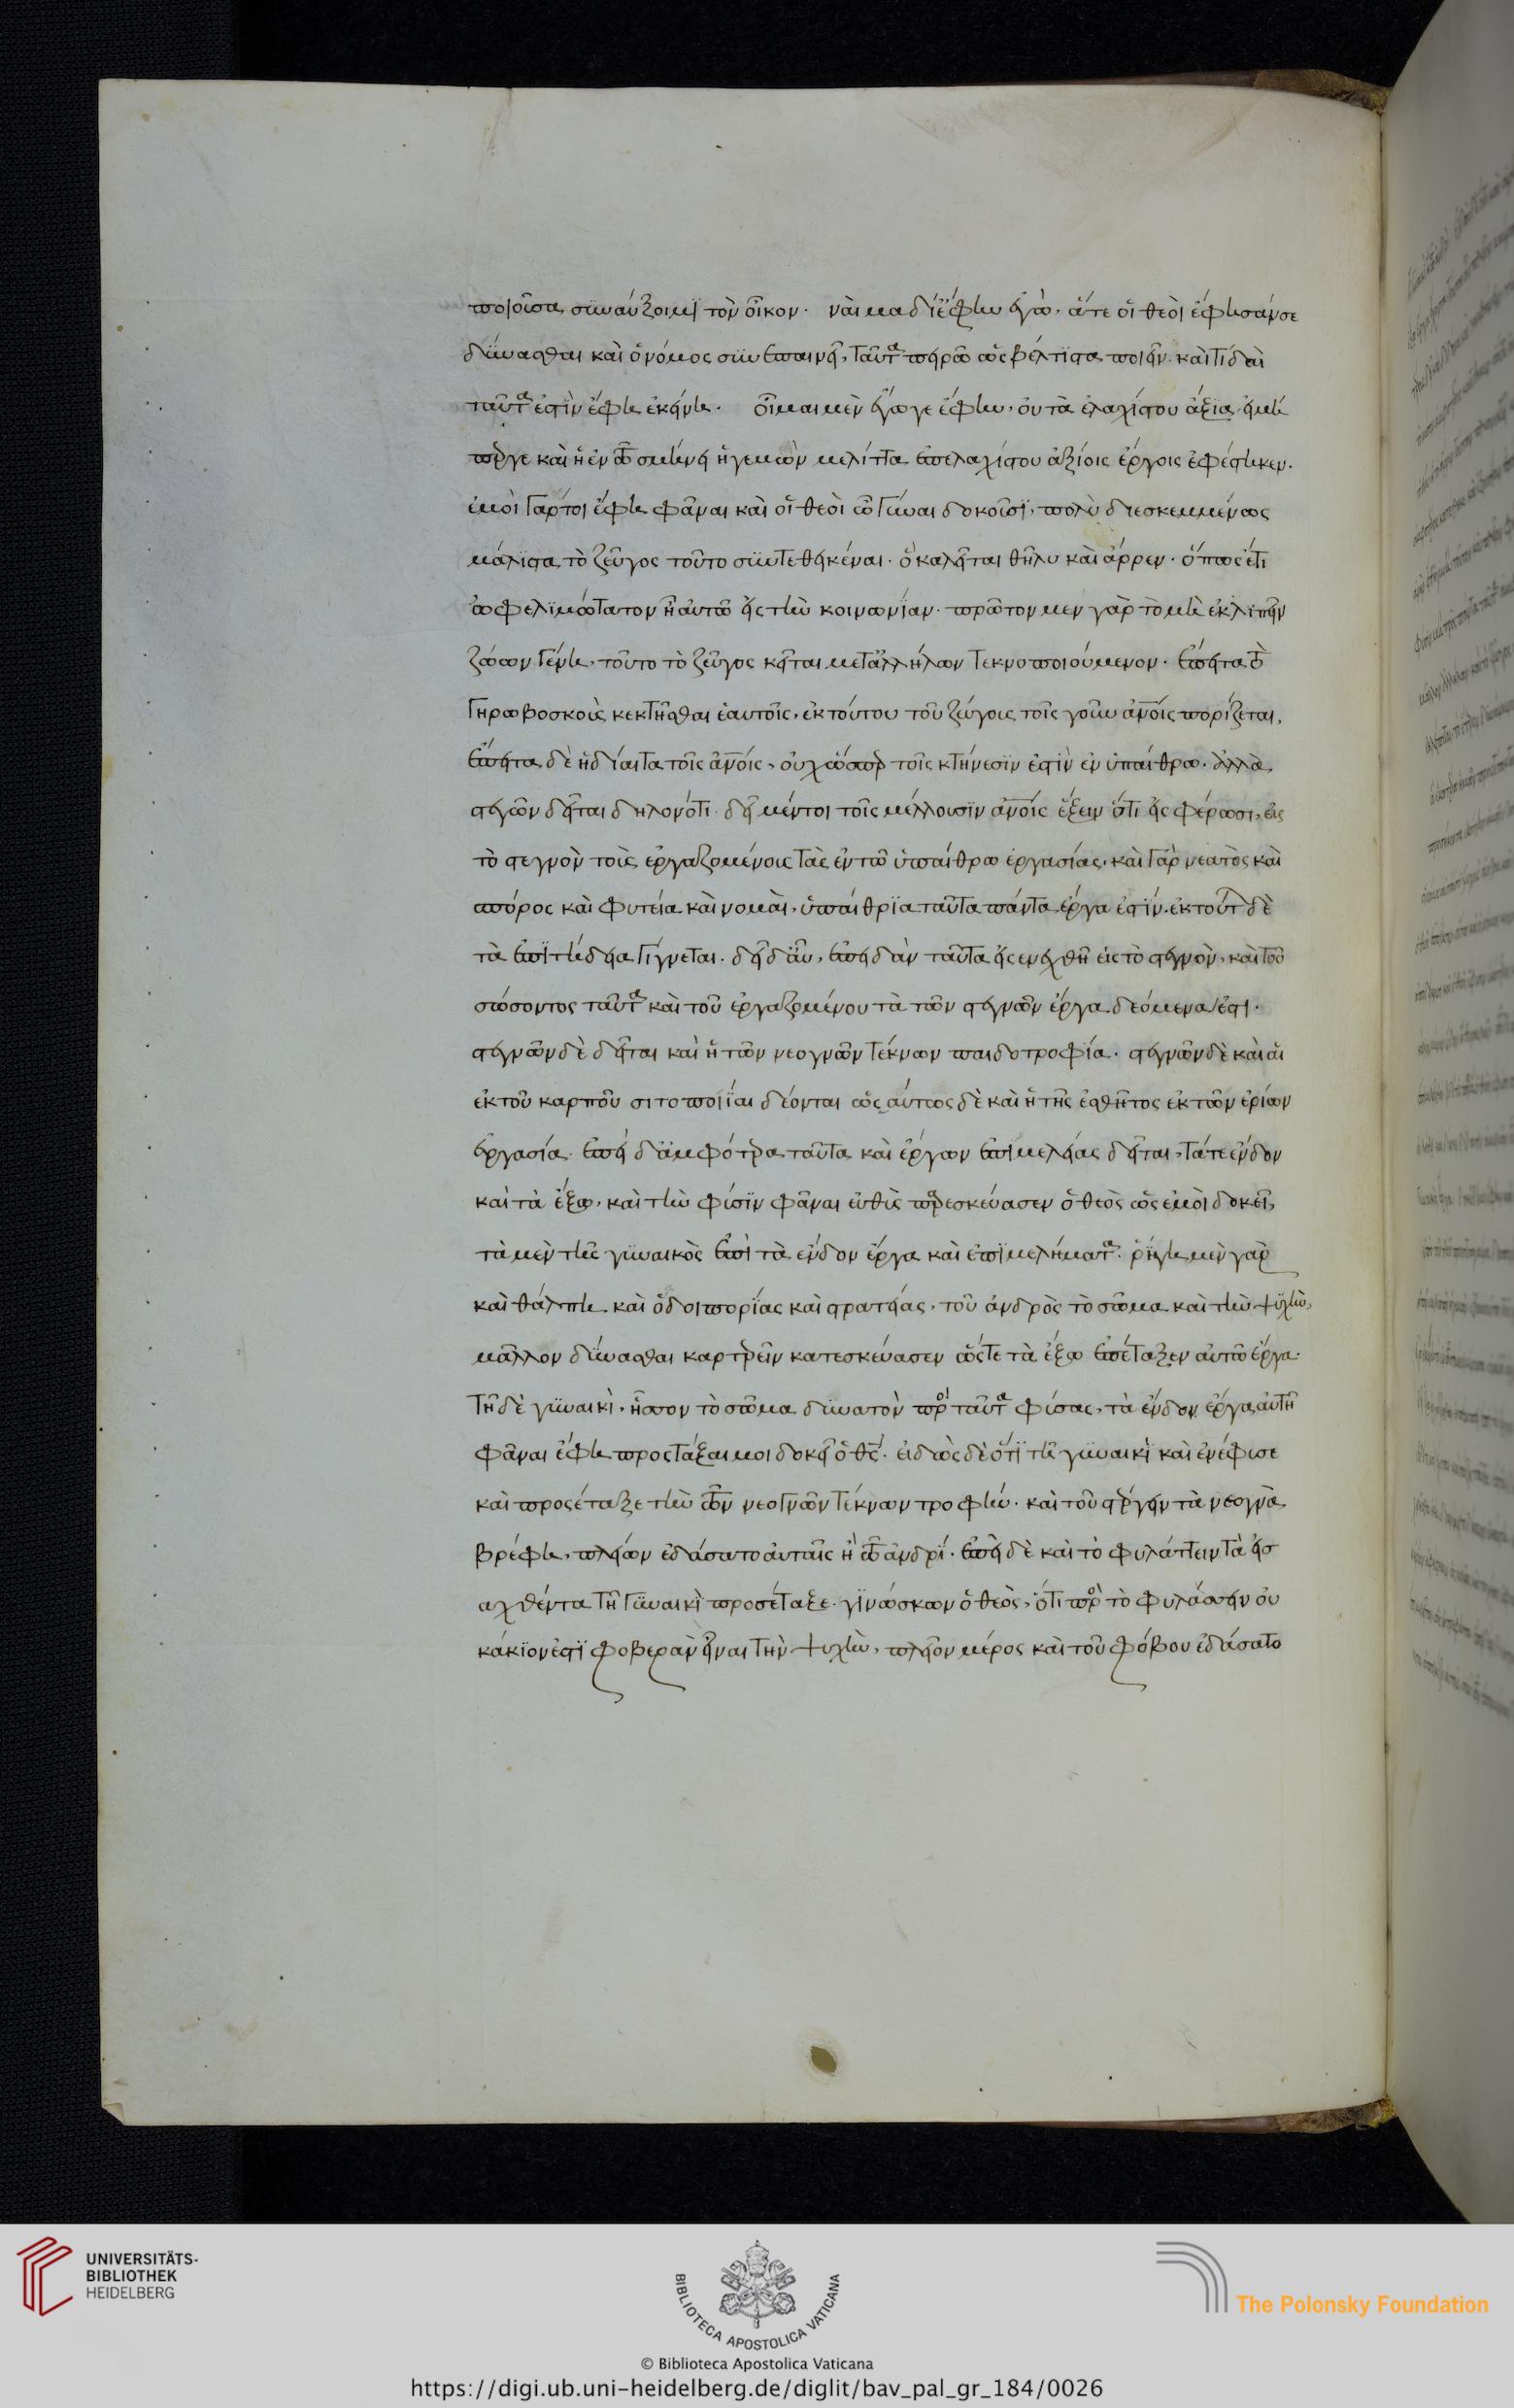 ποιοῦσα συναύξοιμϊ τὸν οἶκον. ναὶ μα δί ἔφην ἐγὼ, ἅτε οἱ θεοὶ ἔφησάν σε
δύνασθαι καὶ ὁ νόμος συνεπαινεῖ, ταῦτα πειρῶ ὡς βέλτϊστα ποιεῖν. καὶ τί δὲ
ταῦτα ἐστὶν ἔφη ἐκείνη. οἶμαι μὲν ἔγωγε ἔφην, οὐ τὰ ἐλαχίστου ἄξϊα, εἰ μή
πέρ γε καὶ ἡ ἐν τῶ σμήνει ἡγεμὼν μέλιττα ἐπ' ἐλαχίστου ἀξίοις ἔργοις ἐφέστηκεν.
ἐμοὶ γάρ τοι ἔφη φᾶναι καὶ οἱ θεοὶ ὦ γύναι δοκοῦσϊ, πολὺ διεσκεμμένως
μάλϊστα τὸ ζεῦγος τοῦτο συντεθηκέναι. ὃ καλεῖται θῆλυ καὶ ἄρρεν. ὅπως ἔτι
ὠφελϊμώτατον ἦ αὐτῶ εἰς τὴν κοινωνίαν. πρῶτον μεν γὰρ τὸ μὴ ἐκλιπεῖν
ζώων γένη, τοῦτο τὸ ζεῦγος κεῖται μετ' ἀλλήλων τεκνοποιούμενον. ἔπειτα τὸ
γηρωβοσκοὺς κεκτῆσθαι ἑαυτοῖς, ἐκ τούτου τοῦ ζεύγους τοῖς γοῦν ἀνοῖς πορίζεται,
ἔπειτα δὲ ἡ δίαιτα τοῖς ἀνοῖς, οὐχ ὥσπερ τοῖς κτήνεσϊν ἐστὶν ἐν ὑπαίθρω. ἀλλὰ
στεγῶν δεῖται δηλονότι. δεῖ μέντοι τοῖς μέλλουσϊν ἀνοῖς ἕξειν ὅτι εἰς φέρωσι, εἰς
τὸ στεγνὸν τοὺς ἐργαζομένους τὰς ἐν τῶ ὑπαίθρω ἐργασίας, καὶ γὰρ νεατὸς καὶ
σπόρος καὶ φυτεία καὶ νομαὶ, ὑπαίθρϊα ταῦτα πάντα ἔργα ἐστϊν. ἐκ τούτ δὲ
τὰ ἐπϊτήδεια γίγνεται. δεῖ δ' αὖ, ἐπειδὰν ταῦτα εἰσενεχθῆ εἰς τὸ στεγνὸν, καὶ τοῦ
σώσοντος ταῦτα καὶ τοῦ ἐργαζομένου τὰ τῶν στεγνῶν ἔργα δεόμενα ἐστι.
στεγνῶν δὲ δεῖται καὶ ἡ τῶν νεογνῶν τέκνων παιδοτροφία. στεγνῶν δὲ καὶ αἱ
ἐκ τοῦ καρποῦ σιτοποιΐαι δέονται ὡς αύτως δὲ καὶ ἡ τῆς ἐσθῆτος ἐκ τῶν ἐρίων
ἐργασία. ἐπεὶ δ' ἀμφότερα ταῦτα καὶ ἔργων ἐπιμελείας δεῖται, τά τε ἔνδον
καὶ τὰ ἔξω, καὶ τὴν φύσϊν φᾶναι εὐθὺς παρεσκεύασεν ὁ θεὸς ὡς ἐμοὶ δοκεῖ,
τὰ μὲν τῆς γυναικὸς ἐπὶ τὰ ἔνδον ἔργα καὶ ἐπϊμελήματα. ῥίγη μὲν γὰρ
καὶ θάλπη καὶ ὁδοιπορίας καὶ στρατείας, τοῦ ἀνδρὸς τὸ σῶμα καὶ τὴν ψυχὴν,
μᾶλλον δύνασθαι καρτερεῖν κατεσκεύασεν ὥςτε τὰ ἔξω ἐπέταξεν αὐτῶ ἔργα.
τῆ δὲ γυναικὶ, ἧσσον τὸ σῶμα δυνατὸν πρὸς ταῦτα φύσας, τὰ ἔνδον ἔργα αὐτῆ
φᾶναι ἔφη προςτάξαι μοι δοκεῖ ὁ θς. εἰδὼς δὲ ὅτϊ τῆ γυναικὶ καὶ ἐνέφυσε
καὶ προςέταξε τὴν τῶν νεογνῶν τέκνων τροφήν. καὶ τοῦ στέργειν τὰ νεογνὰ
βρέφη, πλεῖον ἐδάσατο αὐταῖς ἢ τῶ ἀνδρί. ἐπεὶ δὲ καὶ τὸ φυλάττειν τὰ εἰσ
αχθέντα τῆ γυναικὶ προσέταξε. γϊνώσκων ὁ θεὸς, ὅτι πρὸς τὸ φυλάσσειν οὐ
κάκϊον ἐστϊ φοβερὰν εἶναι τὴν ψυχὴν, πλεῖον μέρος καὶ τοῦ φόβου ἐδάσατο
UNIVERSITÄTS-
BIBLIOTHEK
HEIDELBERG
BIBLIOTECA APOSTOLICA VATICANA
The Polonsky Foundation
© Biblioteca Apostolica Vaticana
https://digi.ub.uni-heidelberg.de/diglit/bav_pal_gr_184/0026